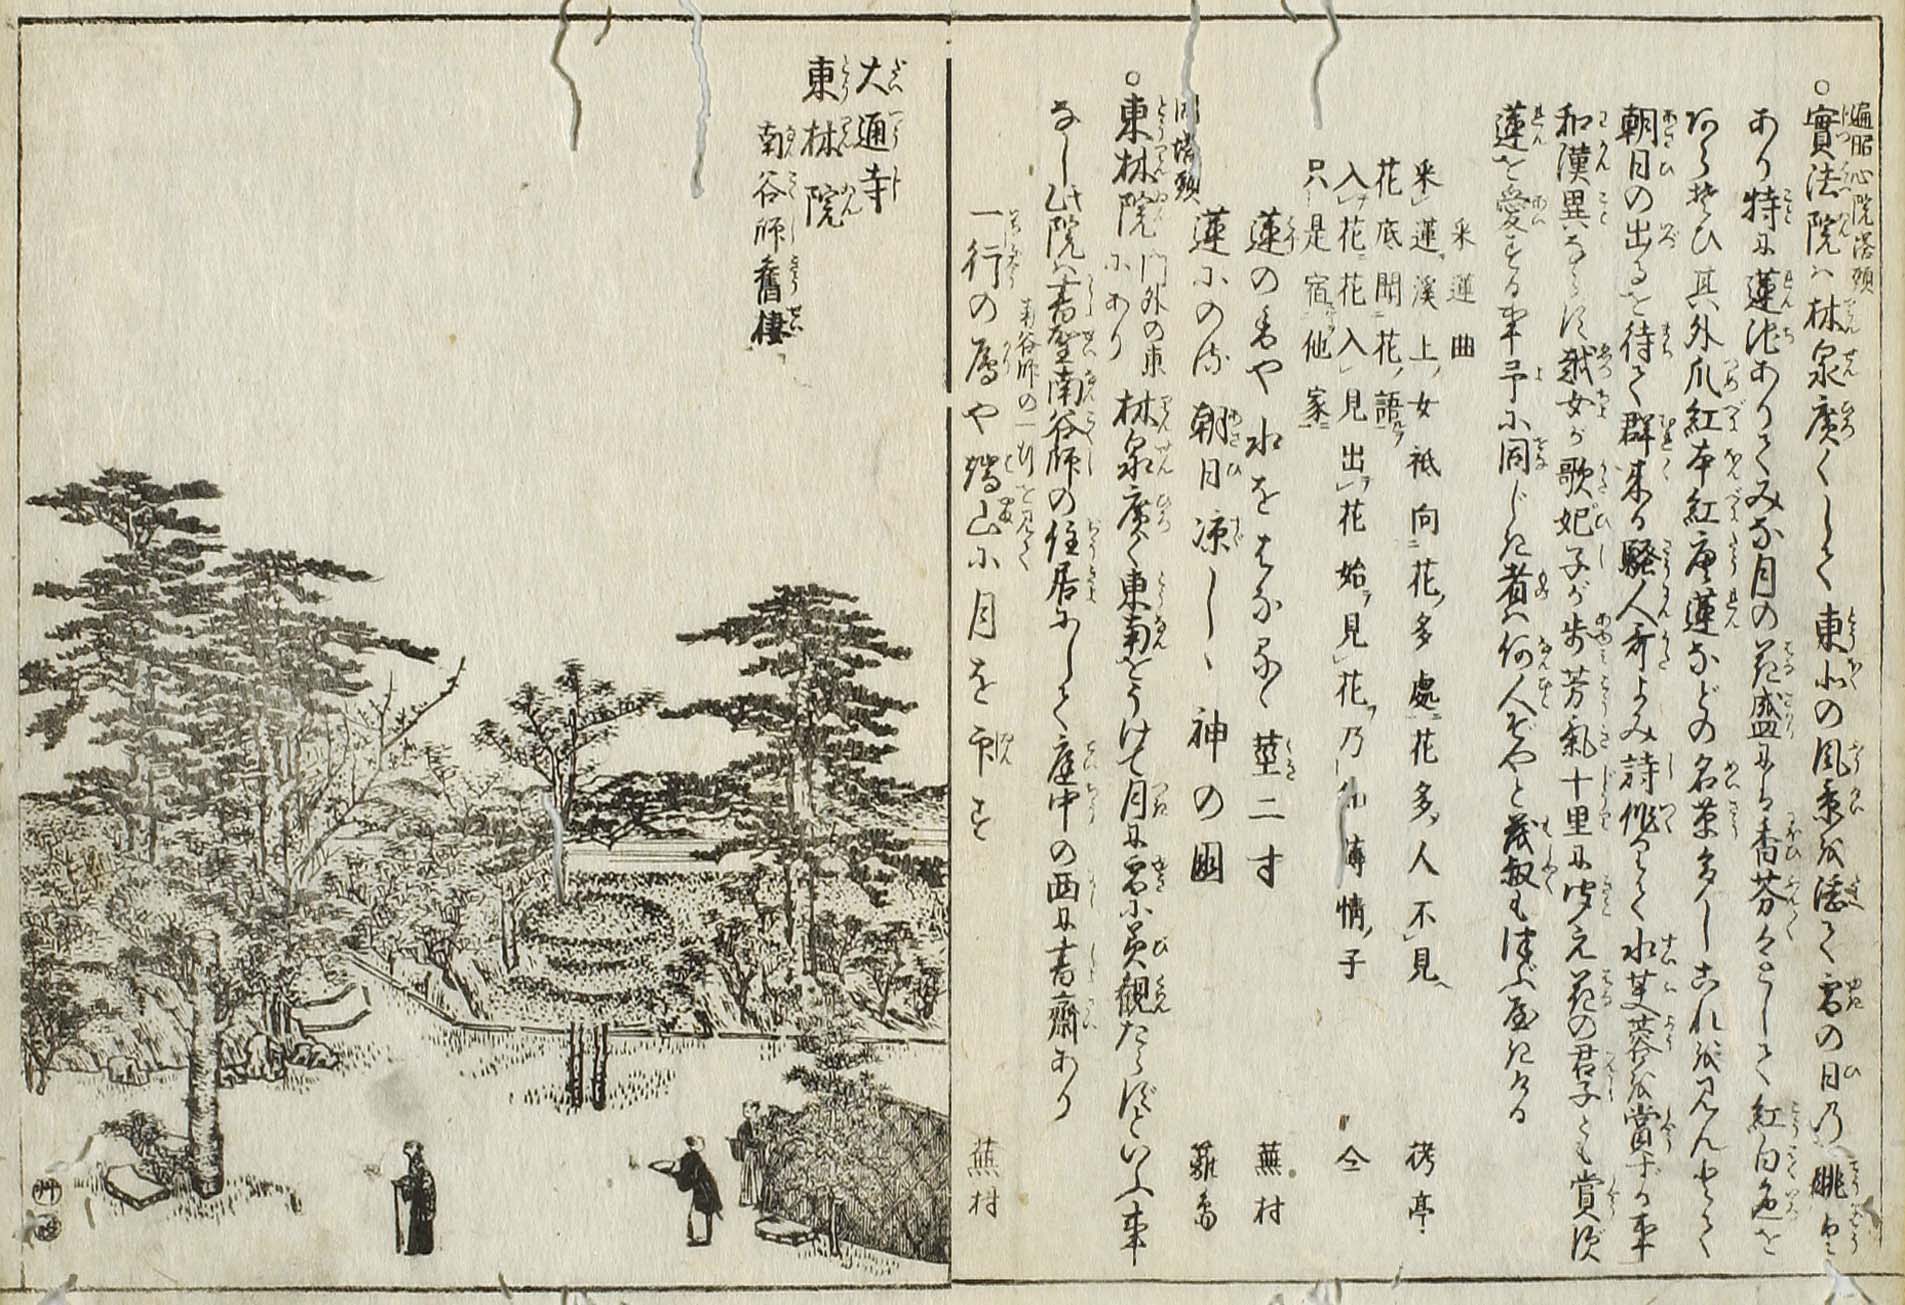 遍照心院塔頭
○實法院は林泉廣くして東北の風景を湛て雪の日乃眺望も
あり特に蓮池ありてみな月の花盛には香芬々として紅白色を
あらそひ其外爪紅本紅唐蓮などの名葉多しこれを見んとて
朝日の出るを待て群来る騒人哥よみ詩作りて水芙蓉を賞する事
和漢異ならず越女が歌妃子が歩芳氣十里に聞え花の君子とも賞須
蓮を愛する事予に同じき者は何人ぞやと茂叔も
采蓮曲
采蓮溪上女祗向花多處花多人不見 樗亭
花底聞花語
入花花入見出花始見花乃 情子 仝
只是宿他家
蓮の香や水をはなるゝ莖二寸 蕪村
蓮の 朝日涼しゝ神の國
同塔頭
○東林院門外の東にあり林泉廣く東南をうけて月に雪に美観たらずといふ事
なし此院は書聖南谷師の住居にして庭中の西に書齋あり
南谷師の一行を見て
一行の鴈や端山に月を印す 蕪村
大通寺
東林院
南谷師舊棲